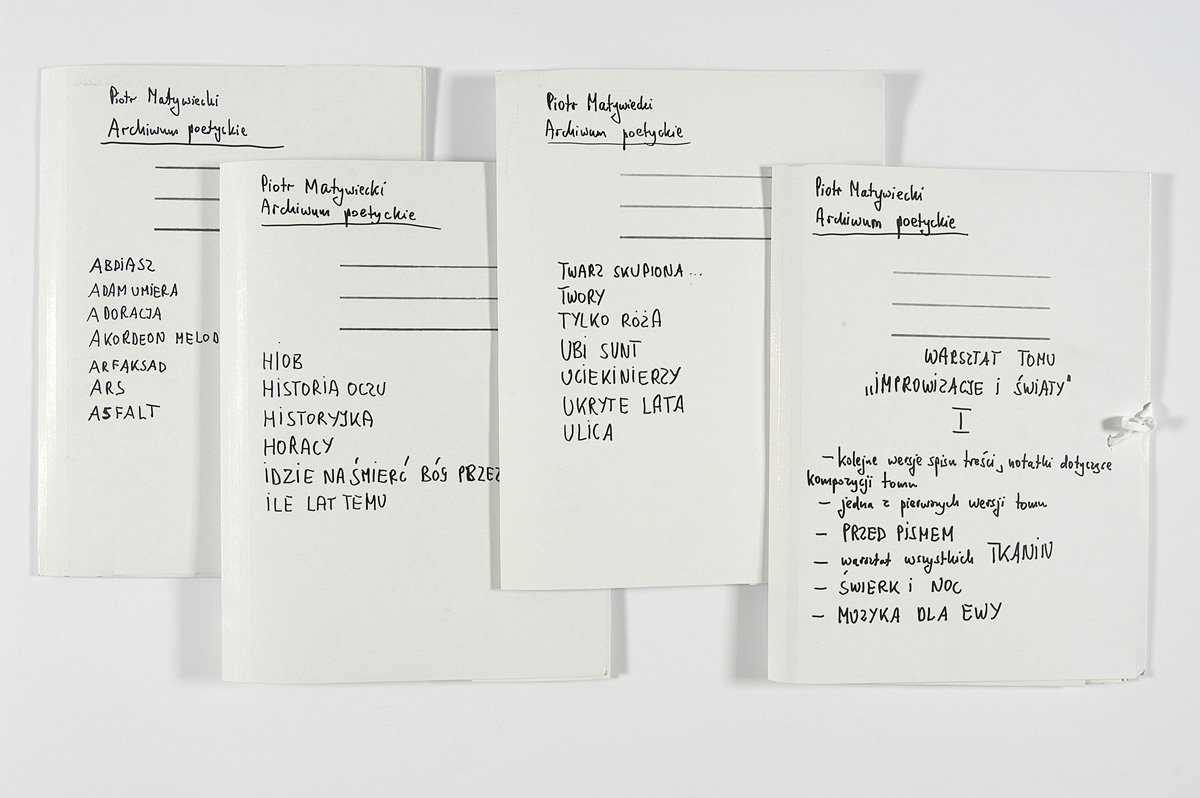 Piotr Matywiecki
Archiwum poetyckie
ABDIASZ
ADAM UMIERA
ADORACJA
AKORDEON MELOD
ARFAKSAD
ARS
ASFALT
Piotr Matywiecki
Archiwum poetyckie
HIOB
HISTORIA OCZU
HISTORYJKA
HORACY
IDZIE NA ŚMIERĆ BÓG PRZEZ
ILE LAT TEMU
Piotr Matywiecki
Archiwum poetyckie
TWARZ SKUPIONA...
TWORY
TYLKO RÓŻA
UBI SUNT
UCIEKINIERZY
UKRYTE LATA
ULICA
Piotr Matywiecki
Archiwum poetyckie
WARSZTAT TOMU
„IMPROWIZACJE I ŚWIATY"
I
- kolejne wersje spisu treści, notatki dotyczące
kompozycji tomu
- jedna z pierwszych wersji tomu
- PRZED PISMEM
- warsztat wszystkich TKANIN
- ŚWIERK i NOC
- MUZYKA DLA EWY